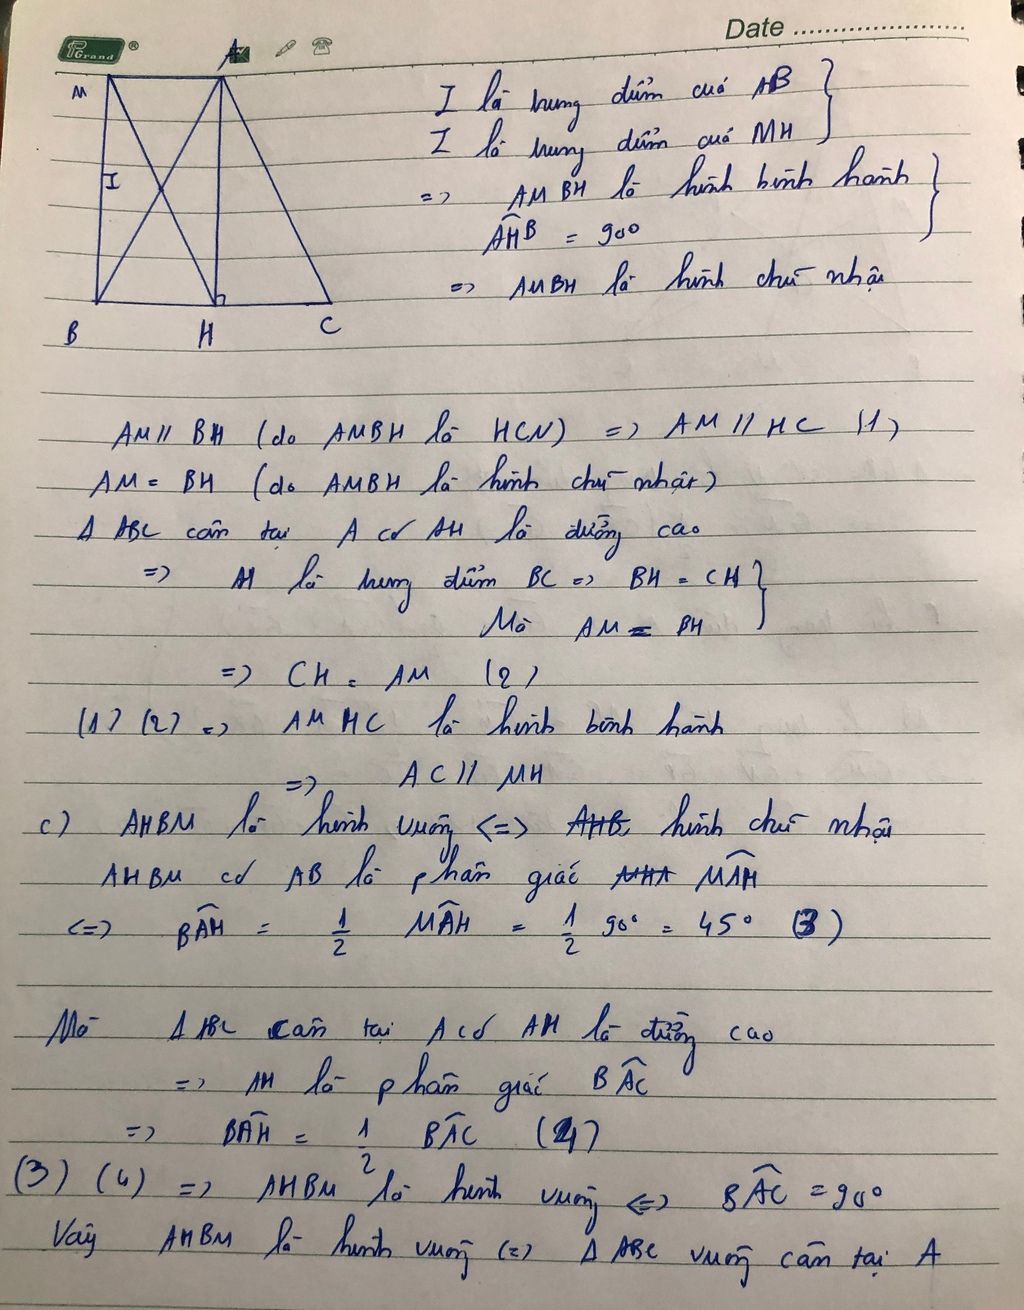 PGrand ®
Date
M
A
I
B
H
C
I là trung điểm của AB
I là trung điểm của MH
=> AMBH là hình bình hành
AHB = 90°
=> AMBH là hình chữ nhật
AM // BH (do AMBH là HCN) => AM // HC (1)
AM = BH (do AMBH là hình chữ nhật)
Δ ABC cân tại A có AH là đường cao
=> H là trung điểm BC => BH = CH
Mà AM = BH
=> CH = AM (2)
(1) (2) => AMHC là hình bình hành
=> AC // MH
c) AHBM là hình vuông <=> AHB hình chữ nhật
AHBM có AB là phân giác MHA MAH
<=> BAH = 1/2 MAH = 1/2 90° = 45° (3)
Mà Δ ABC cân tại A có AH là đường cao
=> AH là phân giác BAC
=> BAH = 1/2 BAC (4)
(3) (4) => AHBM là hình vuông <=> BAC = 90°
Vậy AHBM là hình vuông <=> Δ ABC vuông cân tại A